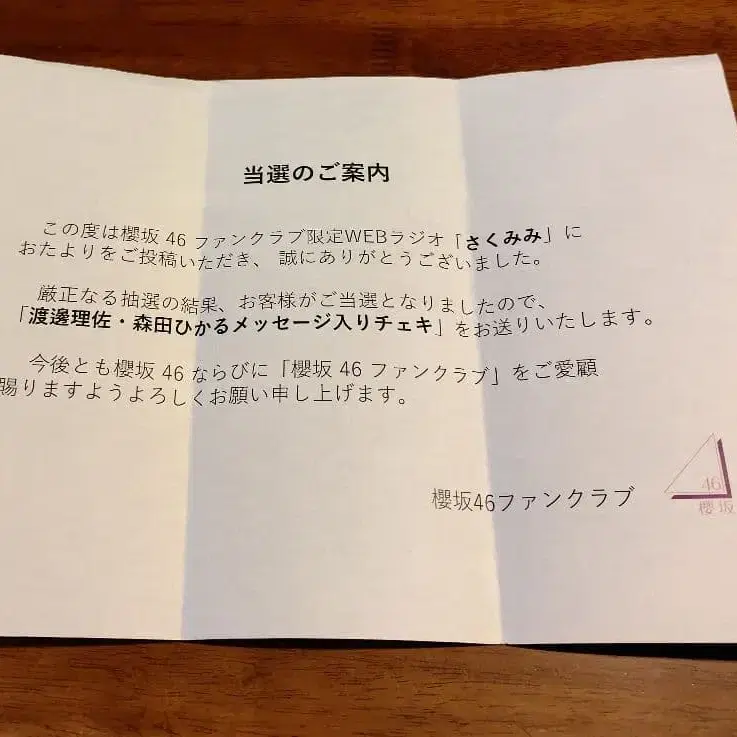 当選のご案内
この度は櫻坂 46 ファンクラブ限定WEBラジオ「さくみみ」に
おたよりをご投稿いただき、誠にありがとうございました。
厳正なる抽選の結果、お客様がご当選となりましたので、
「渡邊理佐・森田ひかるメッセージ入りチェキ」をお送りいたします。
今後とも櫻坂 46 ならびに「櫻坂 46 ファンクラブ」をご愛顧
賜りますようよろしくお願い申し上げます。
櫻坂46ファンクラブ
46
櫻坂